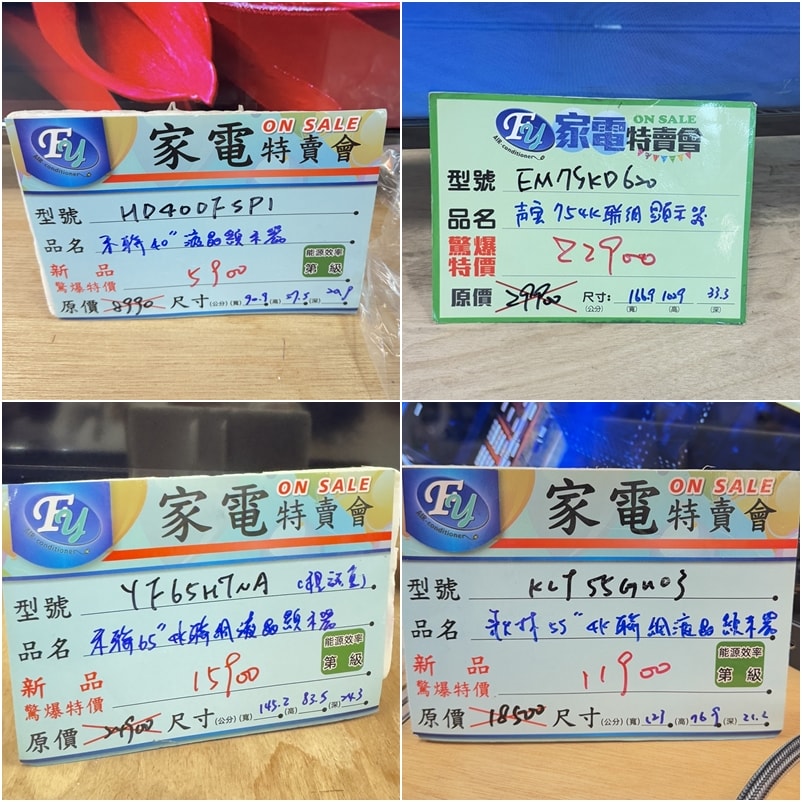 Fy
AIR-conditioner
家電特賣會
ON SALE
型號 HD400FSP1
品名 禾聯40"液晶顯示器
新品
驚爆特價 5900
能源效率
第 級
原價 8990 尺寸(公分)(寬)90.9(高)57.5(深)20.9
Fy
AIR-conditioner
家電特賣會
ON SALE
型號 EM75KD620
品名 聲寶 754K聯網顯示器
驚爆
特價 22900
原價 29900 尺寸:(公分) 166.9(寬) 100.9(高) 33.5(深)
Fy
AIR-conditioner
家電特賣會
ON SALE
型號 YF65H7NA
品名 禾聯65"4K聯網液晶顯示器
新品
驚爆特價 15900
能源效率
第 級
原價 24900 尺寸(公分)(寬)145.2(高)83.5(深)24.3
Fy
AIR-conditioner
家電特賣會
ON SALE
型號 KLT55GU03
品名 歌林55"4K聯網液晶顯示器
新品
驚爆特價 11900
能源效率
第 級
原價 18500 尺寸(公分)(寬)123(高)76.9(深)21.2